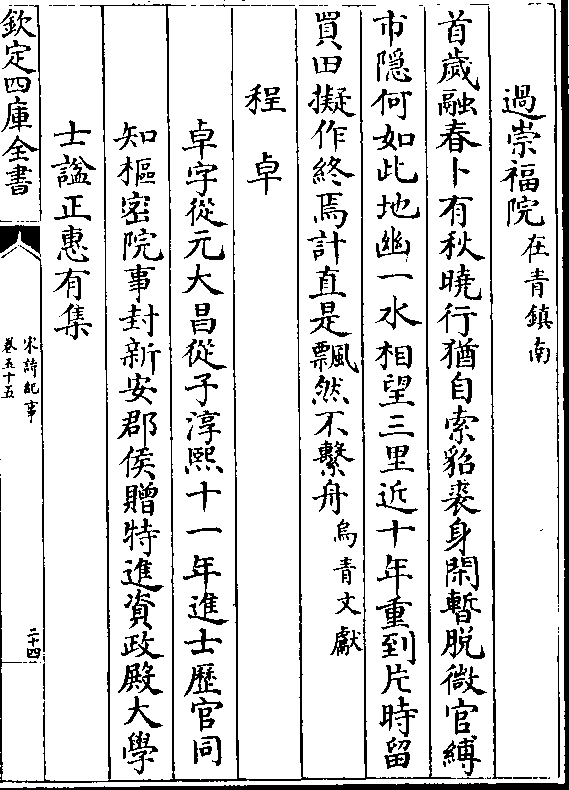 過崇福院在青鎮南
首歲融春卜有秋曉行猶自索貂裘身閑暫脫微官縛
市隱何如此地幽一水相望三里近十年重到片時留
買田擬作終焉計直是飄然不繫舟烏青文獻
程卓
卓字從元大昌從子淳熙十一年進士歷官同
知樞密院事封新安郡侯贈特進資政殿大學
士諡正惠有集
欽定四庫全書
宋詩紀事
卷五十五
二十四